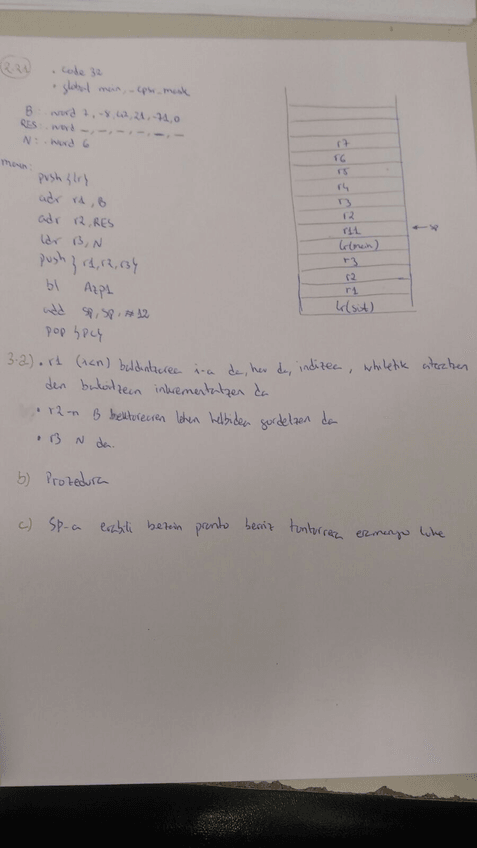 2.21
.code 32
.global main, __cpsr_mask
B: .word 7, -8, 42, 21, -71, 0
RES: .word -, -, -, -, -, -
N: .word 6
main:
push {lr}
adr r1, B
adr r2, RES
ldr r3, N
push {r1, r2, r3}
bl Azp1
add sp, sp, #12
pop {pc}
r7
r6
r5
r4
r3
r2
r11
lr(main)
r3
r2
r1
lr(sist)
3-a) • r1 baldintzarea i-a da, hau da, indizea, whiletik ateratzen
den bakoitzean inkrementatzen da
• r2-n B bektorearen lehen helbidea gordetzen da
• r3 N da.
b) Prozedura
c) SP-a erabili bezain pronto berriz tontorrera eramango luke